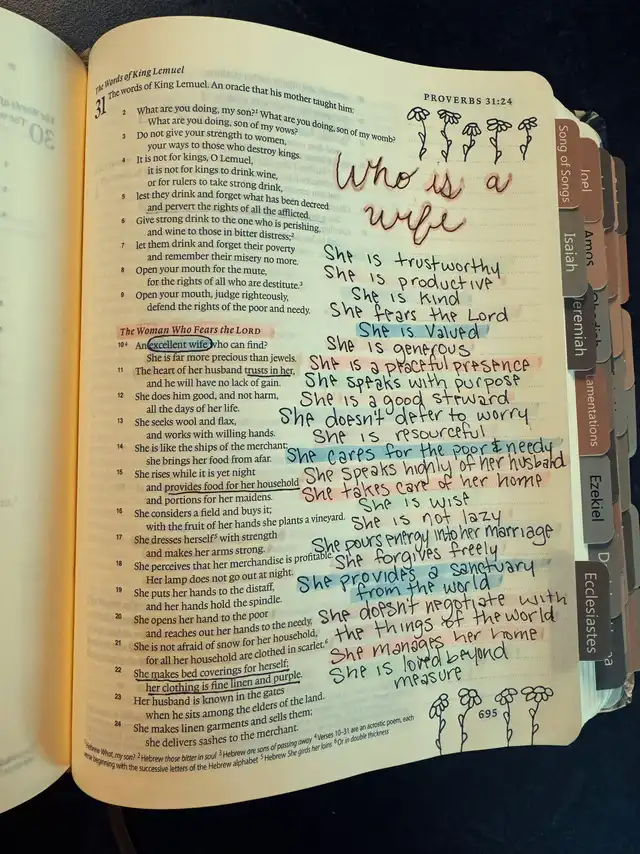 The Words of King Lemuel
31 The words of King Lemuel. An oracle that his mother taught him:
2 What are you doing, my son?¹ What are you doing, son of my womb?
What are you doing, son of my vows?
3 Do not give your strength to women,
your ways to those who destroy kings.
4 It is not for kings, O Lemuel,
it is not for kings to drink wine,
or for rulers to take strong drink,
5 lest they drink and forget what has been decreed
and pervert the rights of all the afflicted.
6 Give strong drink to the one who is perishing,
and wine to those in bitter distress;²
7 let them drink and forget their poverty
and remember their misery no more.
8 Open your mouth for the mute,
for the rights of all who are destitute.³
9 Open your mouth, judge righteously,
defend the rights of the poor and needy.
The Woman Who Fears the LORD
10⁴ An excellent wife who can find?
She is far more precious than jewels.
11 The heart of her husband trusts in her,
and he will have no lack of gain.
12 She does him good, and not harm,
all the days of her life.
13 She seeks wool and flax,
and works with willing hands.
14 She is like the ships of the merchant;
she brings her food from afar.
15 She rises while it is yet night
and provides food for her household
and portions for her maidens.
16 She considers a field and buys it;
with the fruit of her hands she plants a vineyard.
17 She dresses herself⁵ with strength
and makes her arms strong.
18 She perceives that her merchandise is profitable.
Her lamp does not go out at night.
19 She puts her hands to the distaff,
and her hands hold the spindle.
20 She opens her hand to the poor
and reaches out her hands to the needy.
21 She is not afraid of snow for her household,
for all her household are clothed in scarlet.⁶
22 She makes bed coverings for herself;
her clothing is fine linen and purple.
23 Her husband is known in the gates
when he sits among the elders of the land.
24 She makes linen garments and sells them;
she delivers sashes to the merchant.
Hebrew What, my son? ² Hebrew those bitter in soul ³ Hebrew are sons of passing away ⁴ Verses 10-31 are an acrostic poem, each
verse beginning with the successive letters of the Hebrew alphabet ⁵ Hebrew She girds her loins ⁶ Or in double thickness
PROVERBS 31:24
Who is a
wife
She is trustworthy
She is productive
She is kind
She fears the Lord
She is valued
She is generous
She is a peaceful presence
She speaks with purpose
She is a good steward
She doesn't defer to worry
She is resourceful
She cares for the poor & needy
She speaks highly of her husband
She takes care of her home
She is wise
She is not lazy
She pours energy into her marriage
She forgives freely
She provides a sanctuary
from the world
She doesn't negotiate with
the things of the world
She manages her home
She is loved beyond
measure
695
Song of Songs
Isaiah
Jeremiah
Lamentations
Ezekiel
Ecclesiastes
Joel
Amos